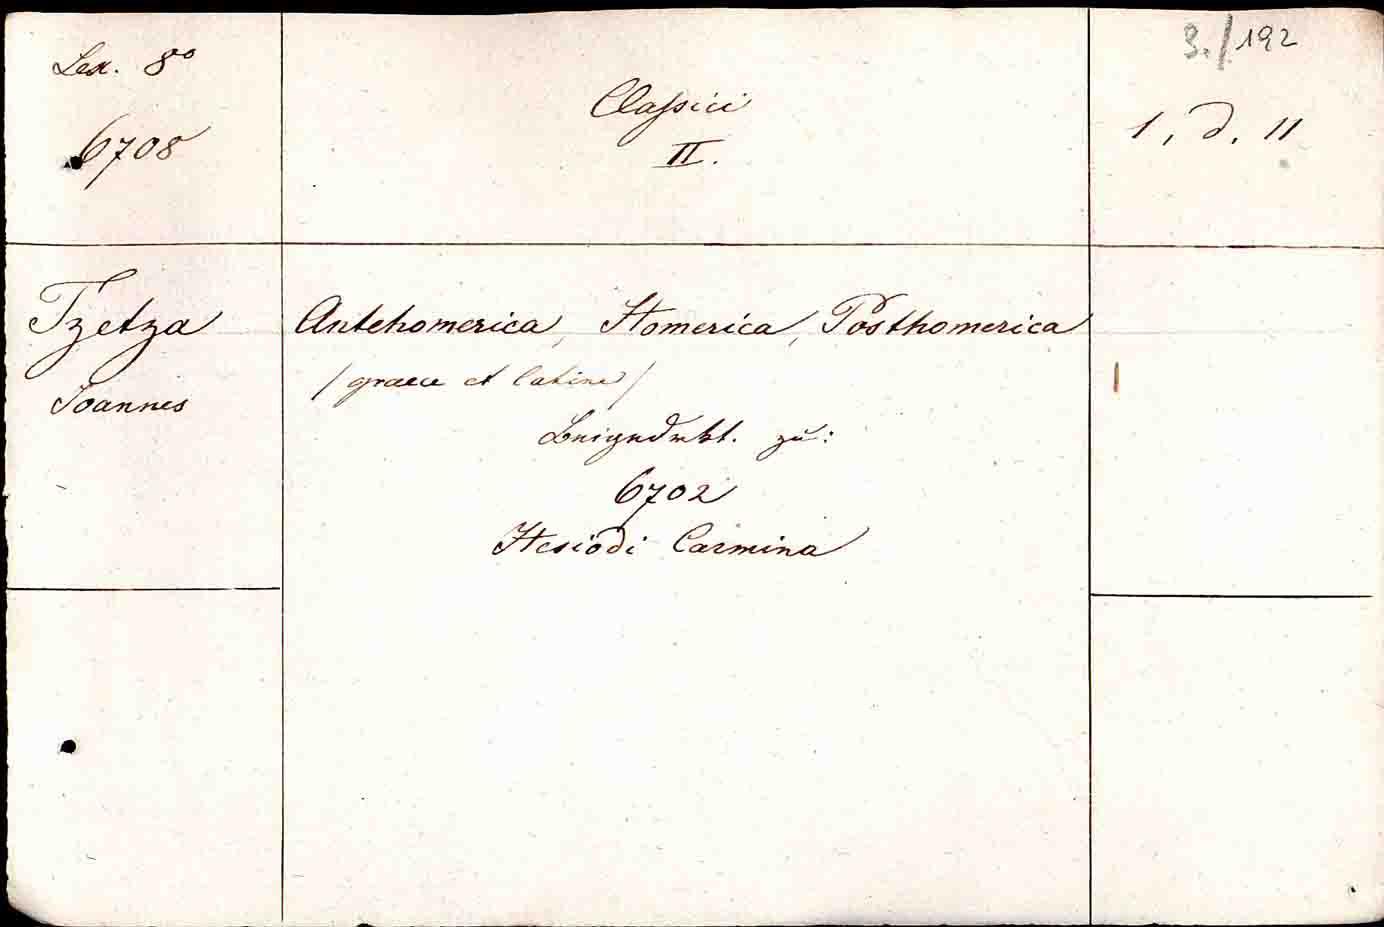 Lex. 8°
6708
Classici
II.
S./192
1, d, 11
Tzetza
Joannes
Antehomerica, Homerica, Posthomerica
/graece et latine/
Beigedrukt. zu:
6702
Hesiodi Carmina